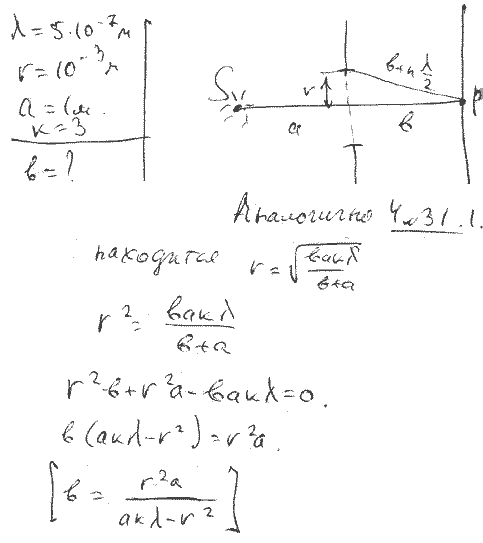 λ = 5·10⁻⁷ м
r = 10⁻³ м
a = 1 м.
к = 3
в = ?
S
r
a
в
в + к λ/2
P
Аналогично 4.31.1.
находится r = √(вакλ/(в+a))
r² = вакλ/(в+a)
r²в + r²a - вакλ = 0.
в(акλ - r²) = r²a.
[в = r²a/(акλ - r²)]